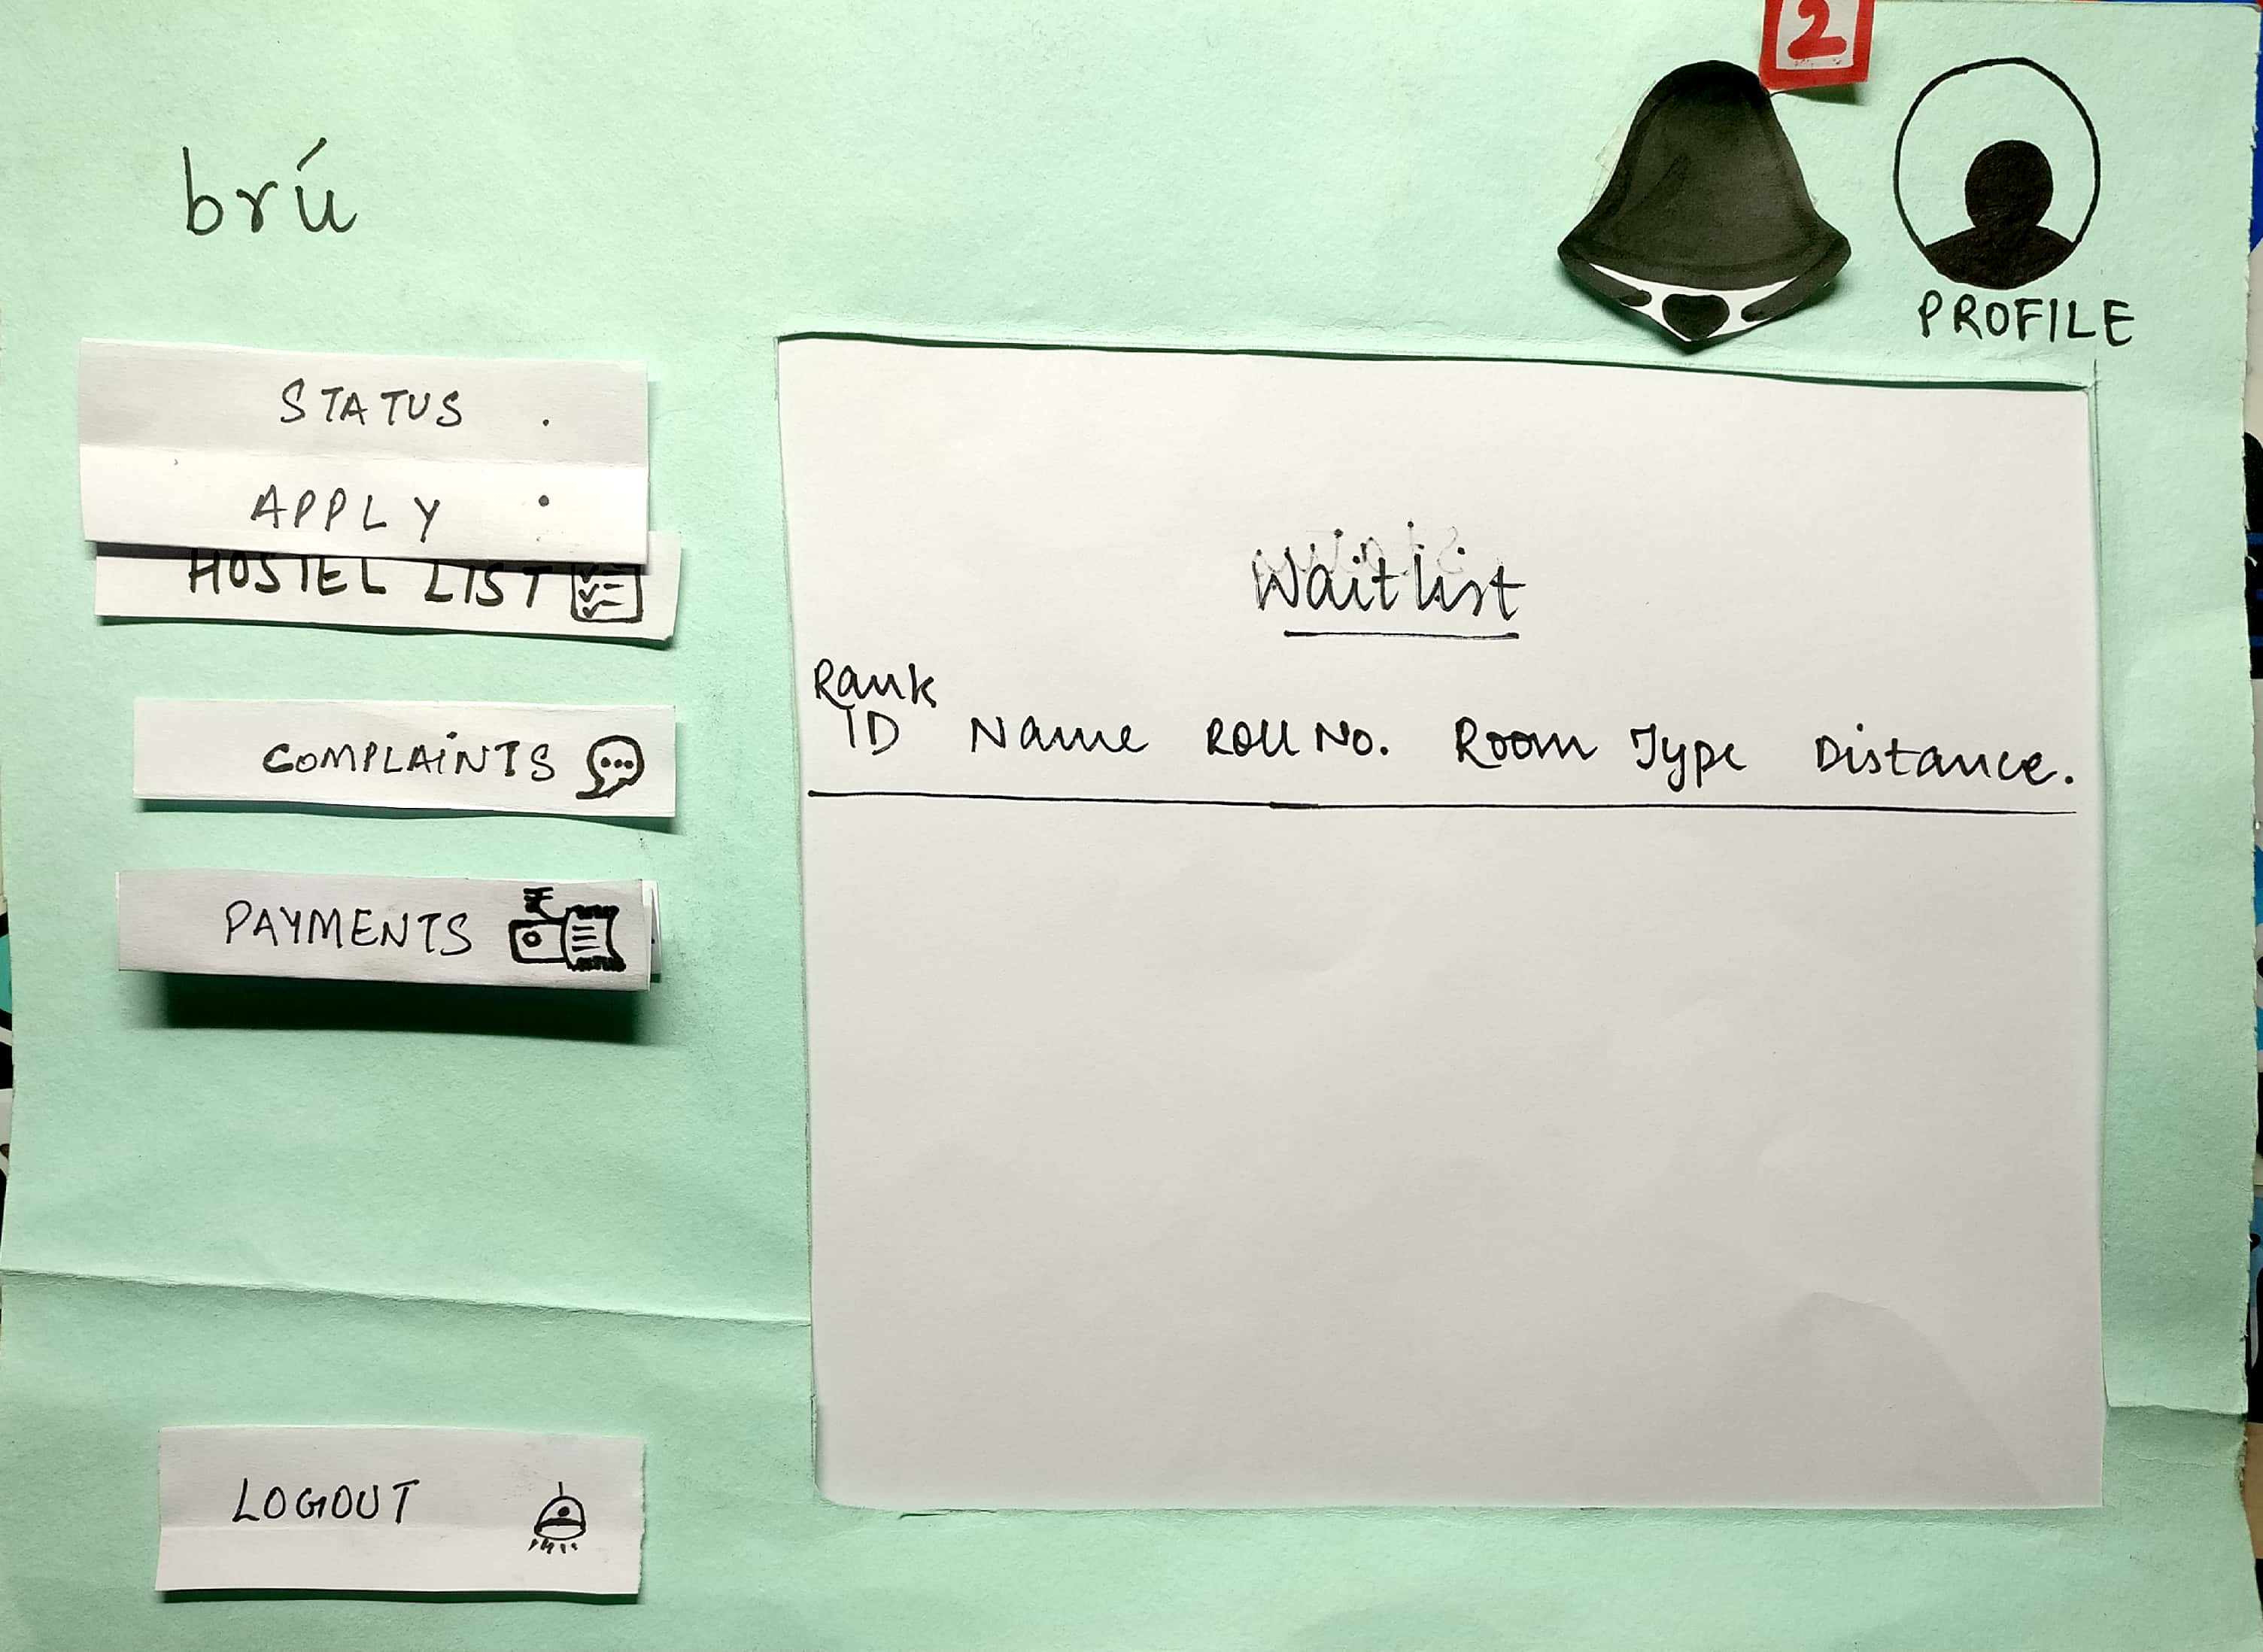 2
brú
PROFILE
STATUS .
APPLY •
HOSTEL LIST
COMPLAiNTS
PAYMENTS
LOGOUT
Waitlist
Rank
ID Name Roll No. Room Type Distance.